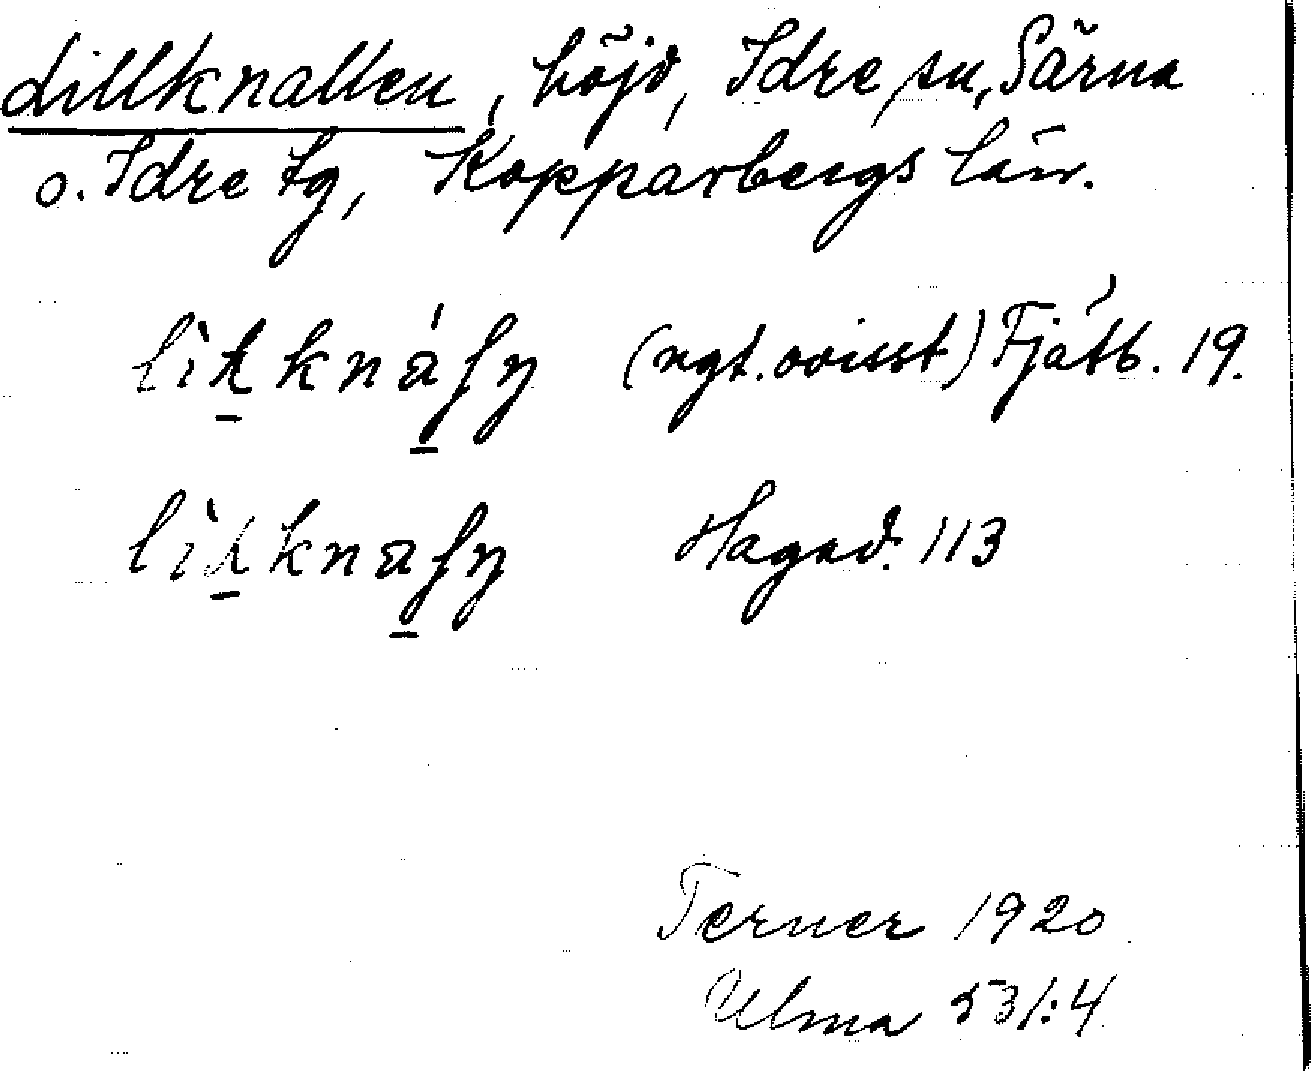 Lillknallen, höjd, Idre sn, Särna
o. Idre tg, Kopparbergs län.
(ngt. ovisst) Fjätb. 19.
Hagad. 113
Terner 1920
Ulma 531:4